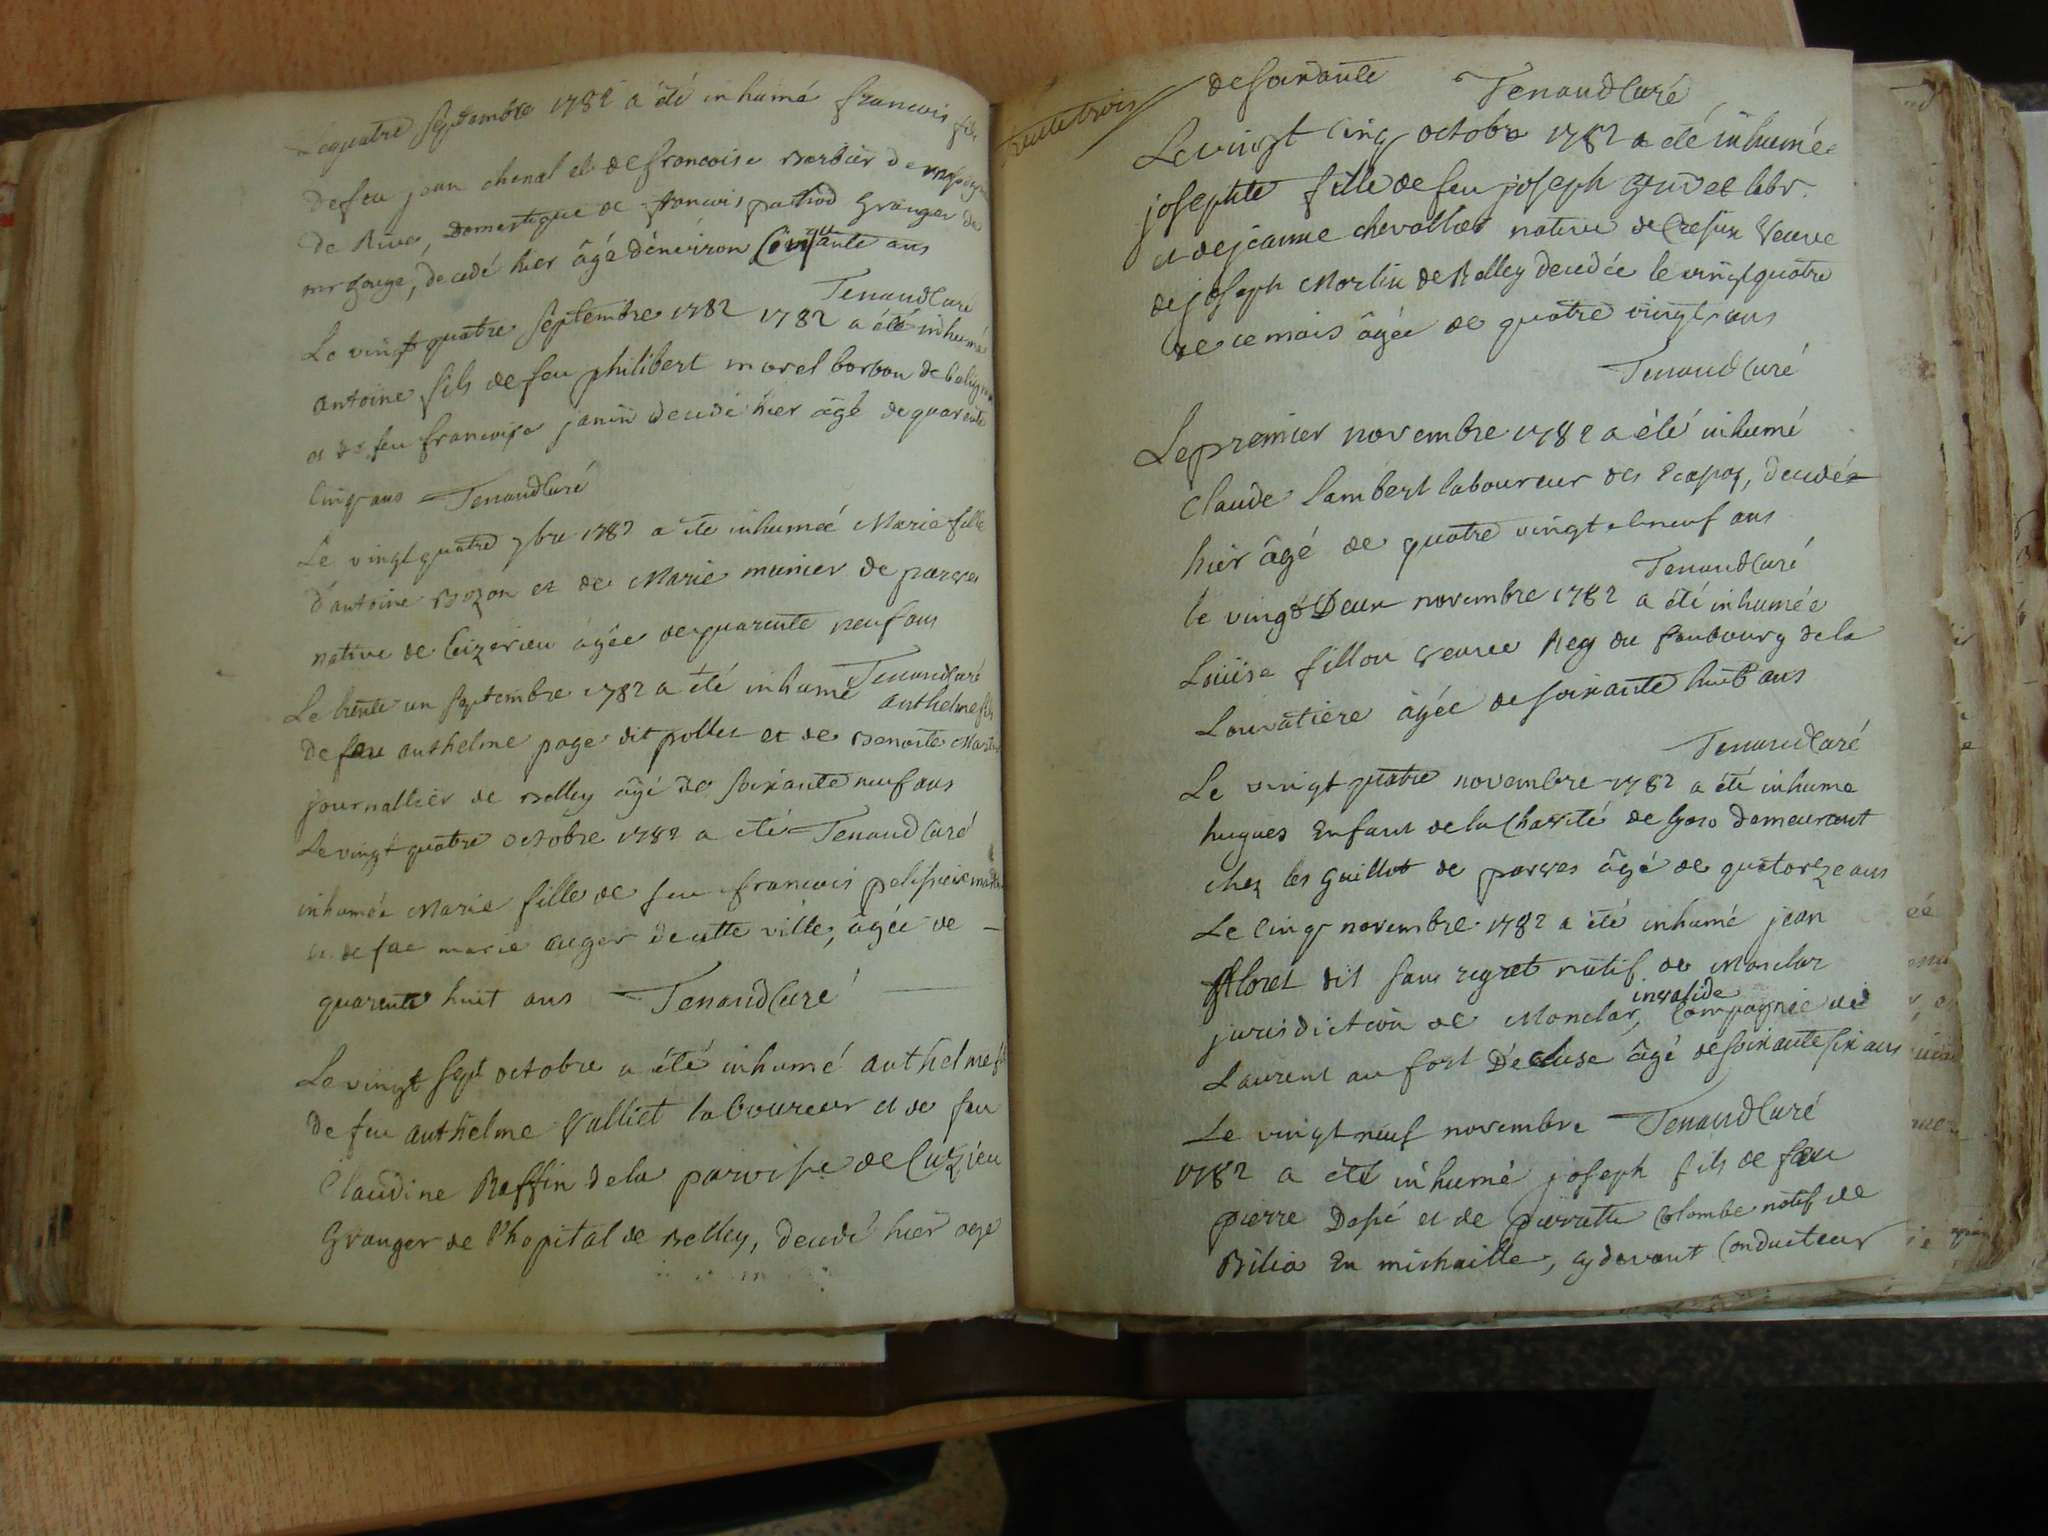 Le quatre septembre 1782 a été inhumé francois fils
de feu jean chenal et de francoise Barbier de
de Rives, Domestique de francois pathod Granger de
mr gouge, decedé hier âgé dénviron Cinquante ans
Tenand Curé
Le vingt quatre septembre 1782 1782 a été inhumé
antoine fils de feu philibert morel barbou de
et de feu francoise janin decedé hier âgé de quarente
Cinq ans Tenand Curé
Le vingt quatre 7bre 1782 a été inhumeé Marie fille
d'antoine Bozon et de Marie munier de parves
native de Ceizerieu âgée de quarente neuf ans
Tenand Curé
Le trente un septembre 1782 a été inhumé anthelme fils
de feu anthelme page dit pollet et de Benoite Martin
journallier de Belley âgé de soixante neuf ans
Le vingt quatre octobre 1782 a été Tenand Curé
inhumée Marie fille de feu francois pelissier
et de fue marie auger de cette ville, âgée de –
quarente huit ans Tenand Curé
Le vingt sept octobre a été inhumé anthelme fs
de feu anthelme Valliet laboureur et de feu
Claudine Raffin de la paroisse de Cuzieu
Granger de l'hopital de Belley, decedé hier age
trente trois
de soixante Tenand Curé
Le vingt cinq octobre 1782 a été inhumée
josephte fille de feu joseph labr.
et de jeanne chevallier native de Cresieu Veuve
de joseph Martin de Belley decedée le vingt quatre
de ce mois âgée de quatre vingts ans
Tenand Curé
Le premier novembre 1782 a été inhumé
Claude Lambert laboureur des Ecapoz, decedé
hier âgé de quatre vingt et neuf ans
Tenand Curé
le vingt Deux novembre 1782 a été inhumée
Louise fillon veuve Rey du faubourg de la
Louvatiere âgée de soixante huit ans
Tenand Curé
Le vingt quatre novembre 1782 a été inhume
hugues Enfant de la Charité de Lyon demeurant
chez les Guillot de parves âgé de quatorze ans
Le Cinq novembre 1782 a été inhumé jean
floret dit sans regret natif de Monclar
jurisdiction de Monclar, invalide Compagnie de
Laurent au fort De Cluse âgé de soixante six ans
Le vingt neuf novembre Tenand Curé
1782 a été inhumé joseph fils de feu
pierre Dapé et de pierrette Colombe natif de
Biliat En michaille, cy devant Conducteur